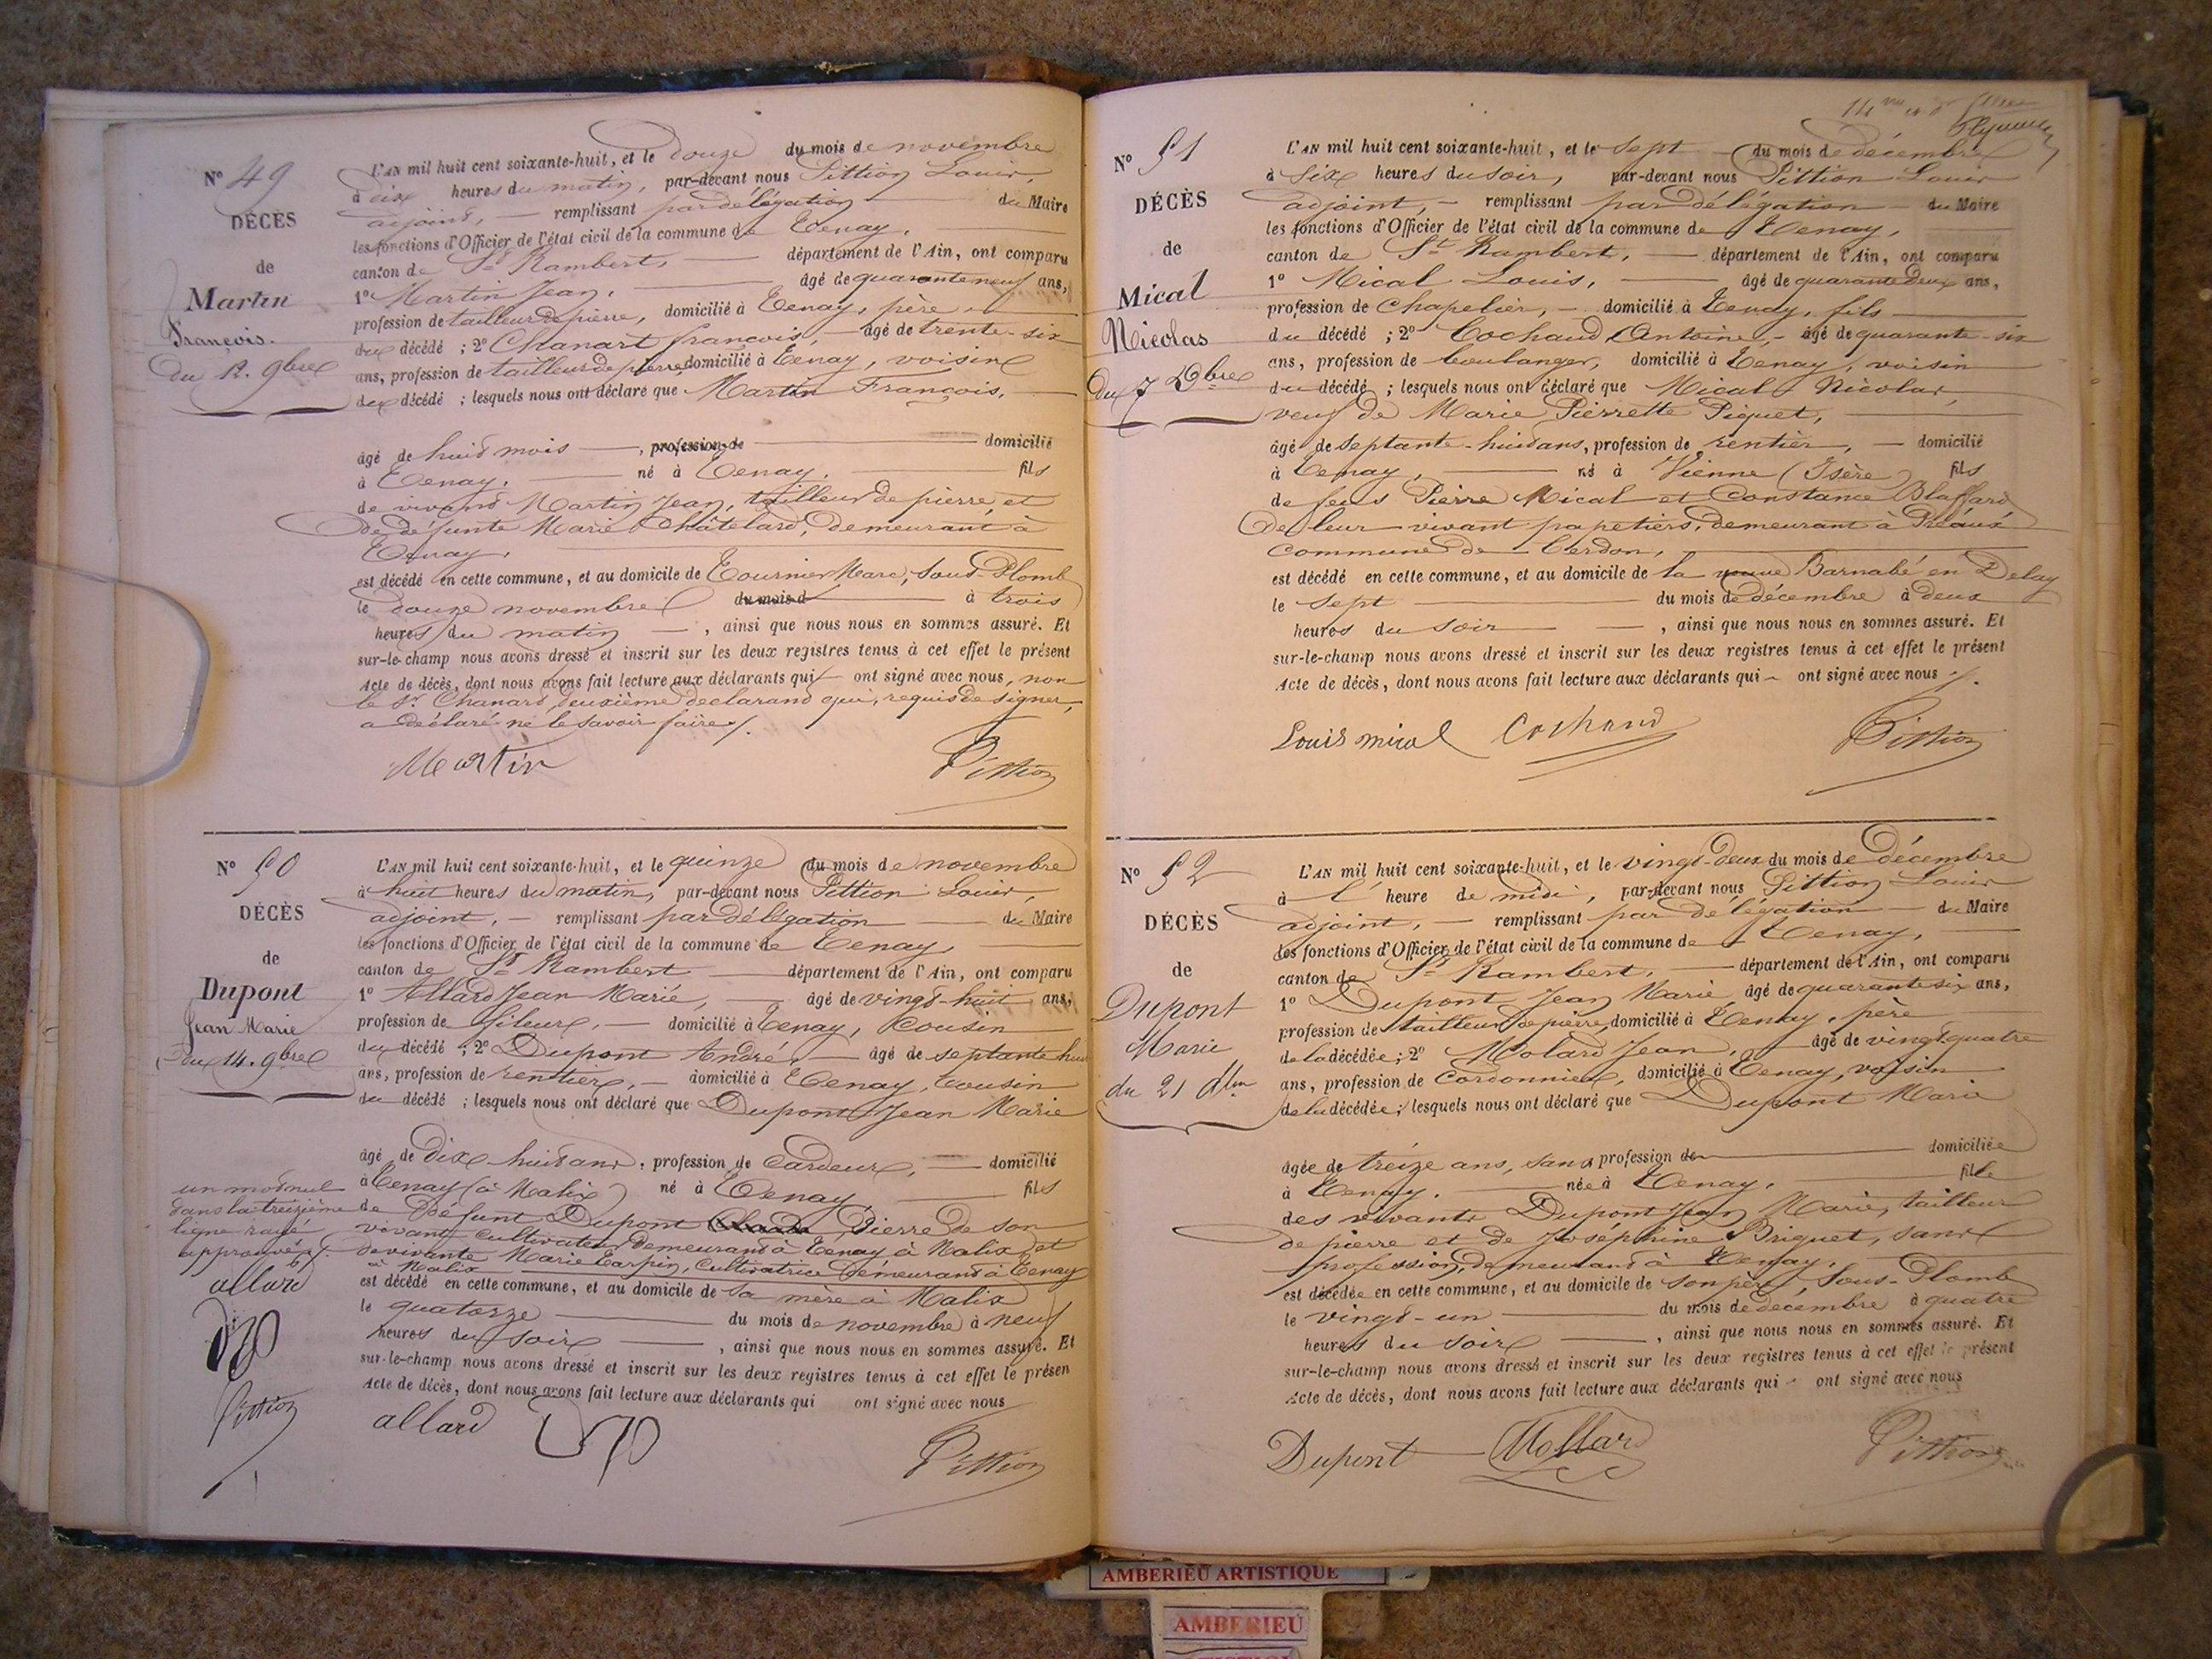 N° 49
DÉCÈS
de
Martin
François.
Du 12. 9bre
L'AN mil huit cent soixante-huit, et le douze du mois de novembre
à dix heures du matin, par-devant nous Pittion Louis,
adjoint, — remplissant par délégation du Maire
les fonctions d'Officier de l'état civil de la commune de Tenay,
canton de St Rambert, département de l'Ain, ont comparu
1° Martin Jean, âgé de quarante neuf ans,
profession de tailleur de pierre, domicilié à Tenay, père
du décédé ; 2° Chanart françois, âgé de trente-six
ans, profession de tailleur de pierre, domicilié à Tenay, voisin
du décédé ; lesquels nous ont déclaré que Martin François,
âgé de huit mois —, profession de — domicilié
à Tenay, né à Tenay, fils
de vivant Martin Jean, tailleur de pierre, et
de défunte Marie Châtelard, demeurant à
Tenay,
est décédé en cette commune, et au domicile de Tournier Marc, sous-Plomb
le douze novembre du mois d à trois
heures du matin —, ainsi que nous nous en sommes assuré. Et
sur-le-champ nous avons dressé et inscrit sur les deux registres tenus à cet effet le présent
Acte de décès, dont nous avons fait lecture aux déclarants qui ont signé avec nous, non
le Sr Chanard, deuxième déclarant qui, requis de signer,
a déclaré ne le savoir faire.
Martin Pittion
N° 50
DÉCÈS
de
Dupont
Jean Marie
Du 14. 9bre
L'AN mil huit cent soixante-huit, et le quinze du mois de novembre
à huit heures du matin, par-devant nous Pittion Louis,
adjoint, — remplissant par délégation du Maire
les fonctions d'Officier de l'état civil de la commune de Tenay,
canton de St Rambert département de l'Ain, ont comparu
1° Allard Jean Marie, âgé de vingt-huit ans,
profession de fileur, — domicilié à Tenay, Cousin
du décédé ; 2° Dupont André, — âgé de septante huit
ans, profession de rentier, — domicilié à Tenay, Cousin
du décédé ; lesquels nous ont déclaré que Dupont Jean Marie
âgé de Dix-huit ans, profession de Cardeur, domicilié
à Tenay (à Malix) né à Tenay fils
de défunt Dupont Pierre de son
vivant cultivateur demeurant à Tenay à Malix et
de vivante Marie Tarpin, cultivatrice demeurant à Tenay
à Malix
est décédé en cette commune, et au domicile de sa mère à Malix
le quatorze du mois de novembre à neuf
heures du soir, ainsi que nous nous en sommes assuré. Et
sur-le-champ nous avons dressé et inscrit sur les deux registres tenus à cet effet le présen
Acte de décès, dont nous avons fait lecture aux déclarants qui ont signé avec nous
un mot nul
dans la treizième
ligne rayé
approuvé
allard
Pittion
allard
Pittion
N° 51
DÉCÈS
de
Mical
Nicolas
Du 7 Xbre
L'AN mil huit cent soixante-huit, et le sept du mois de décembre
à six heures du soir, par-devant nous Pittion Louis
adjoint, — remplissant par délégation du Maire
les fonctions d'Officier de l'état civil de la commune de Tenay,
canton de St Rambert, — département de l'Ain, ont comparu
1° Mical Louis, âgé de quarante deux ans,
profession de Chapelier, — domicilié à Tenay, fils
du décédé ; 2° Cochaud Antoine, — âgé de quarante-six
ans, profession de boulanger, domicilié à Tenay, voisin
du décédé ; lesquels nous ont déclaré que Mical Nicolas,
veuf de Marie Pierrette Piquet,
âgé de septante-huit ans, profession de rentier, — domicilié
à Tenay, né à Vienne (Isère) fils
de feus Pierre Mical et Constance Blaffard
de leur vivant papetiers, demeurant à Préaux
commune de Cerdon,
est décédé en cette commune, et au domicile de la veuve Barnabé en Delay
le sept du mois de décembre à deux
heures du soir —, ainsi que nous nous en sommes assuré. Et
sur-le-champ nous avons dressé et inscrit sur les deux registres tenus à cet effet le présent
Acte de décès, dont nous avons fait lecture aux déclarants qui ont signé avec nous.
Louis mical Cochaud Pittion
N° 52
DÉCÈS
de
Dupont
Marie
du 21
L'AN mil huit cent soixante-huit, et le vingt-deux du mois de décembre
à l'heure de midi, par-devant nous Pittion Louis
adjoint, — remplissant par délégation du Maire
les fonctions d'Officier de l'état civil de la commune de Tenay,
canton de St Rambert, — département de l'Ain, ont comparu
1° Dupont Jean Marie âgé de quarante six ans,
profession de tailleur de pierre, domicilié à Tenay, père
de la décédée ; 2° Molard Jean, âgé de vingt quatre
ans, profession de Cordonnier, domicilié à Tenay, voisin
de la décédée ; lesquels nous ont déclaré que Dupont Marie
âgée de treize ans, sans profession de domiciliée
à Tenay, née à Tenay, fille
des vivants Dupont Jean Marie, tailleur
de pierre et de Joséphine Briquet, sans
profession, demeurant à Tenay,
est décédée en cette commune, et au domicile de son père, Sous-Plomb
le vingt-un du mois de décembre à quatre
heures du soir —, ainsi que nous nous en sommes assuré. Et
sur-le-champ nous avons dressé et inscrit sur les deux registres tenus à cet effet le présent
Acte de décès, dont nous avons fait lecture aux déclarants qui ont signé avec nous
Dupont Mollard Pittion
AMBERIEU ARTISTIQUE
AMBERIEU